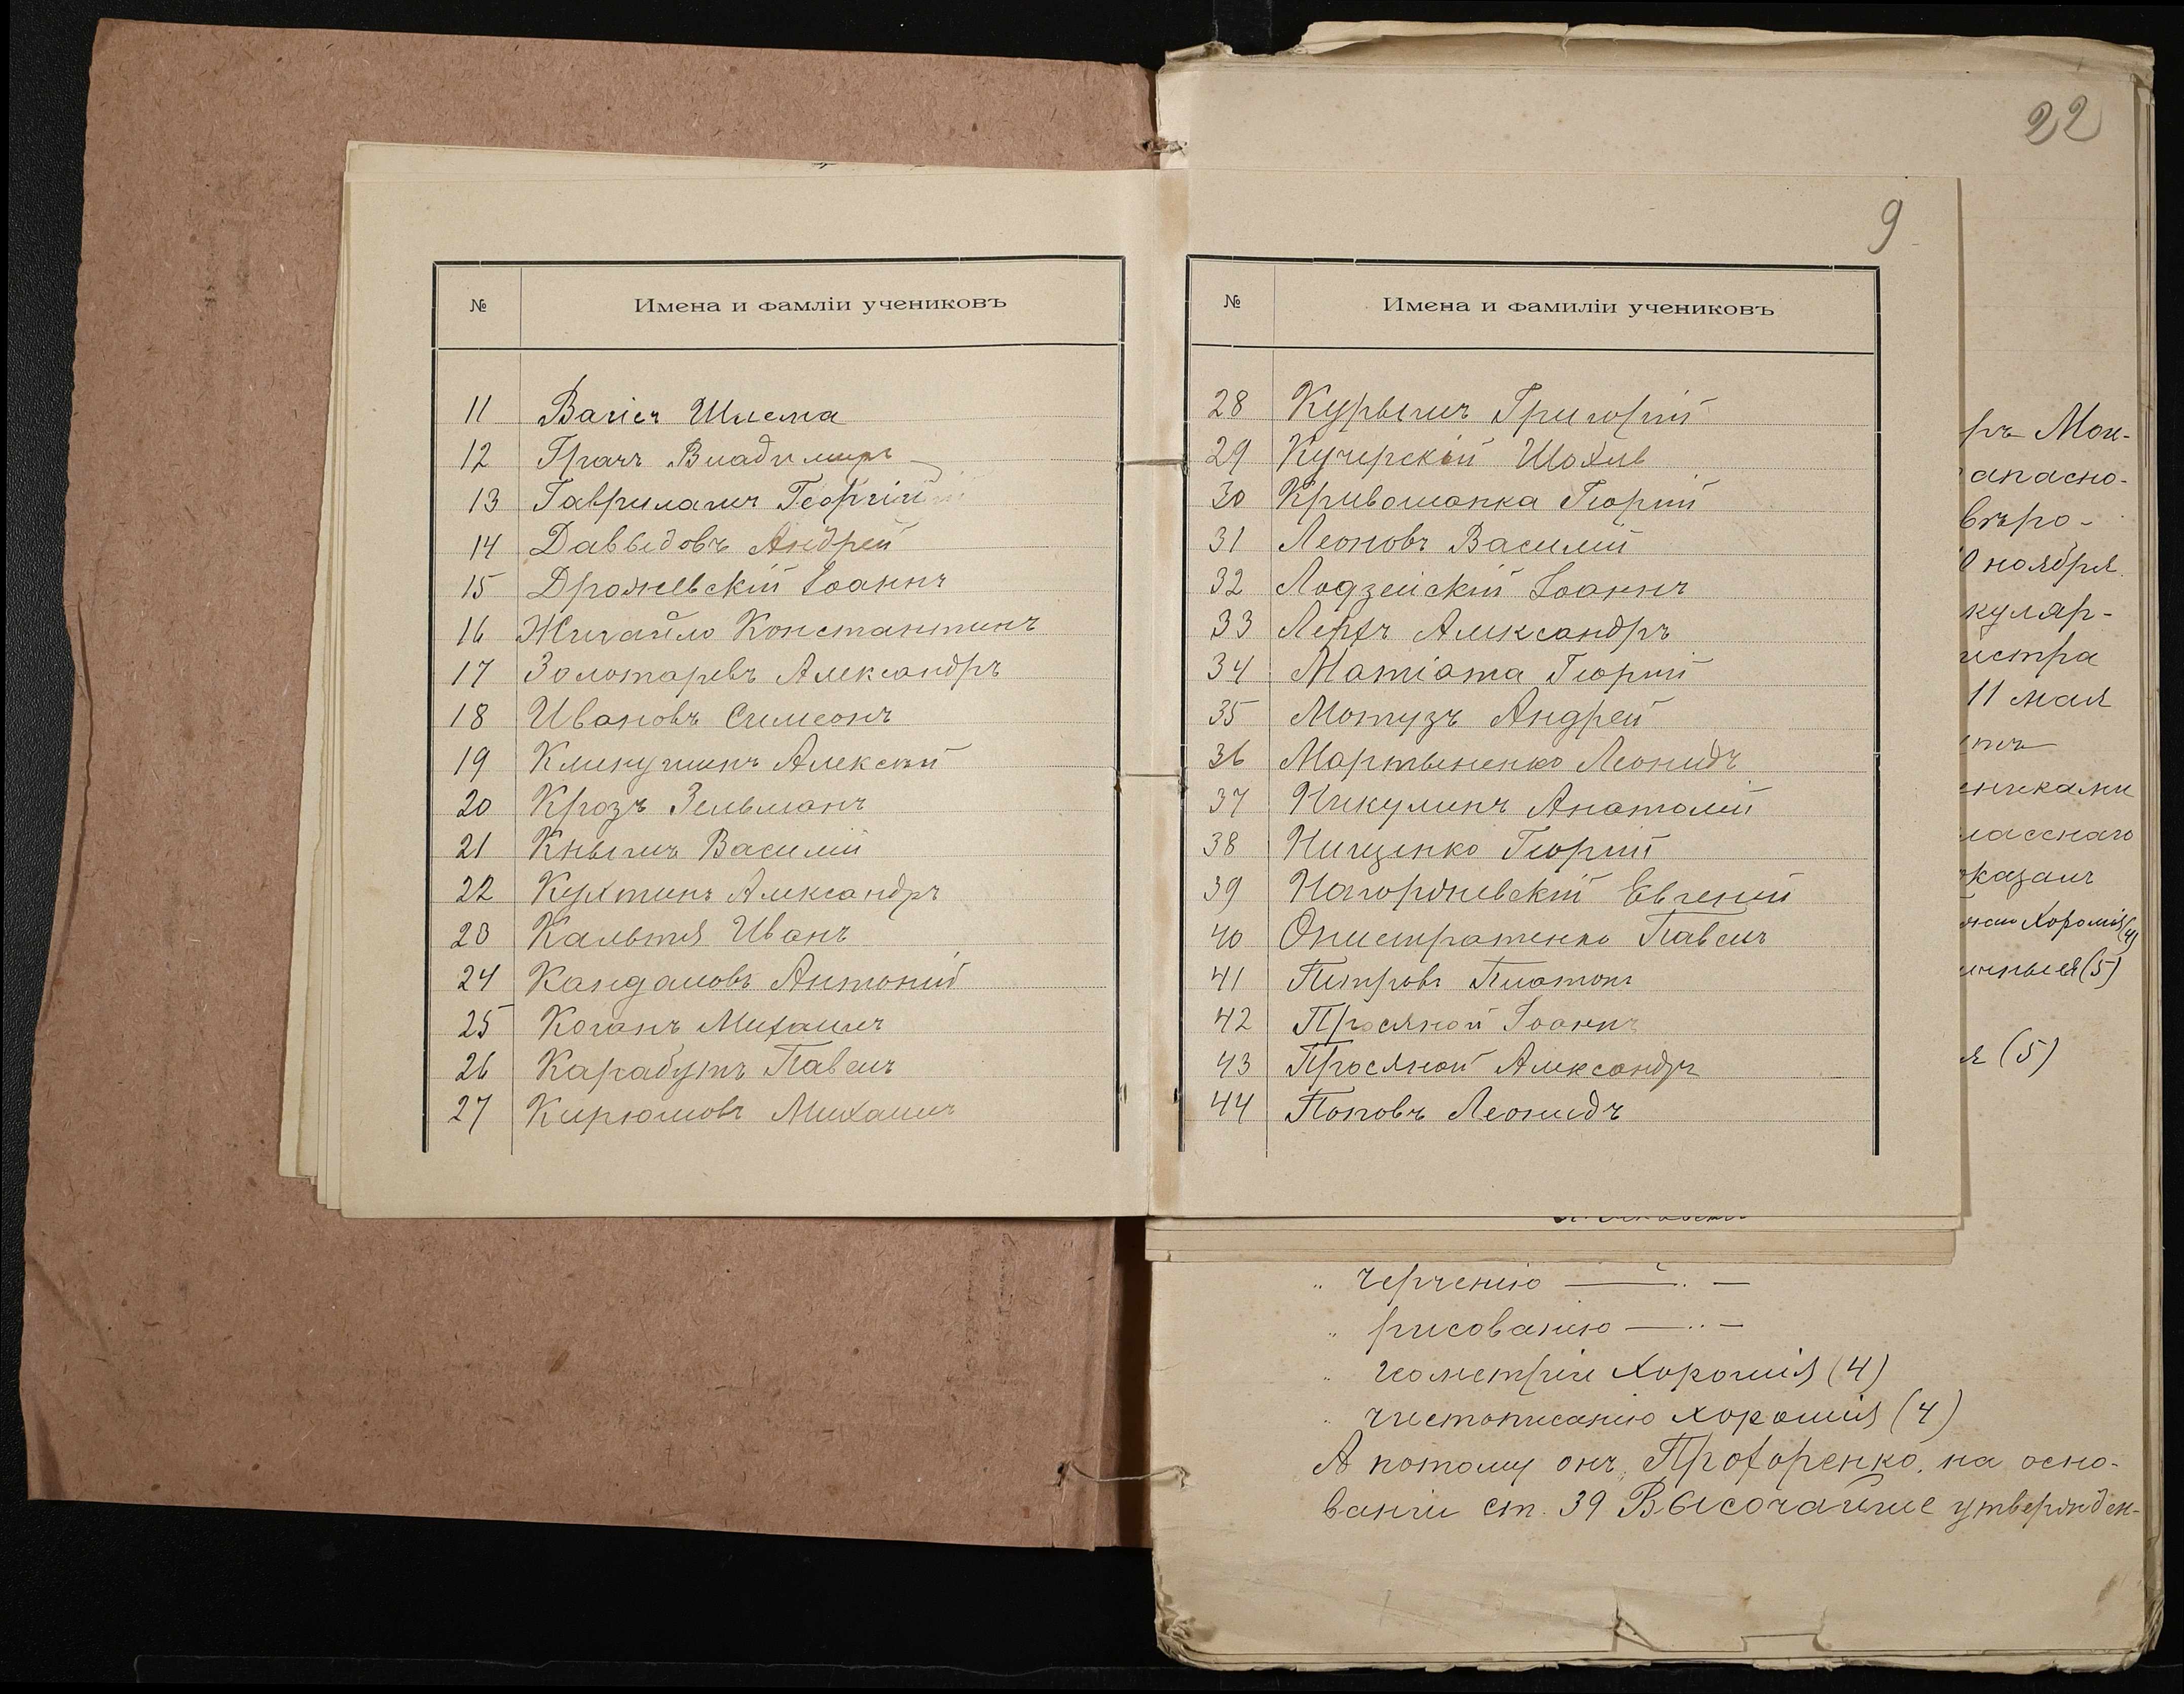 22
9
№ Имена и фамліи учениковъ
11 Вагіеч Шлема
12 Грачъ Владимиръ
13 Гавриланъ Георгій
14 Давыдовъ Андрей
15 Дрожевскій Іоаннъ
16 Жигайло Константинъ
17 Золотаревъ Александръ
18 Ивановъ Симеонъ
19 Клинушинъ Алексѣй
20 Крозъ Зельманъ
21 Кнышъ Василій
22 Кухтинъ Александръ
23 Кальтя Иванъ
24 Кандаловъ Антоній
25 Коганъ Михаилъ
26 Карабутъ Павелъ
27 Кирюшовъ Михаилъ
№ Имена и фамиліи учениковъ
28 Курышъ Григорій
29 Кучерскій
30 Кривошапка Георгій
31 Леоновъ Василій
32 Лодзейскій Іоаннъ
33 Лерхъ Александръ
34 Матіата Георгій
35 Мотузъ Андрей
36 Мартыненко Леонидъ
37 Никулинъ Анатолій
38 Нищенко Георгій
39 Нагоржевскій Евгеній
40 Онистратенко Павелъ
41 Петровъ Платонъ
42 Просяной Іоаннъ
43 Просяной Александръ
44 Поповъ Леонидъ
ръ Мои-
апасно-
вѣро-
0 ноября
куляр-
истра
11 мая
никами
ласснаго
казалъ
Хорошія (4)
ичныя (5)
я (5)
„ черченію — „ —
„ рисованію — „ —
„ геометріи хорошія (4)
„ чистописанію хорошія (4)
А потому онъ, Прохоренко, на осно-
ваніи ст. 39 Высочайше утвержден-